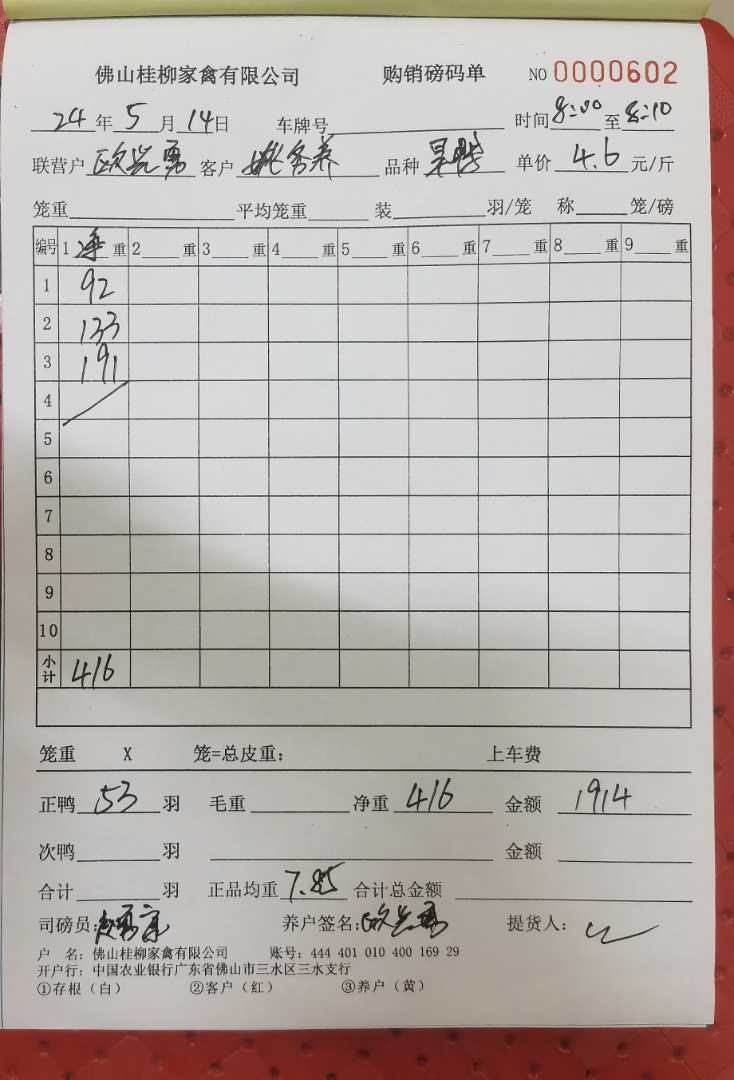 佛山桂柳家禽有限公司 购销磅码单 NO 0000602
24年5月14日 车牌号 时间8:00至8:10
联营户 欧 勇 客户 养 品种 单价 4.6 元/斤
笼重 平均笼重 装 羽/笼 称 笼/磅
编号 1净重 2 重 3 重 4 重 5 重 6 重 7 重 8 重 9 重
1 92
2 133
3 191
4
5
6
7
8
9
10
小计 416
笼重 X 笼=总皮重: 上车费
正鸭 53 羽 毛重 净重 416 金额 1914
次鸭 羽 金额
合计 羽 正品均重 7.85 合计总金额
司磅员: 养户签名:欧 勇 提货人:
户 名: 佛山桂柳家禽有限公司 账号: 444 401 010 400 169 29
开户行: 中国农业银行广东省佛山市三水区三水支行
①存根(白) ②客户(红) ③养户(黄)